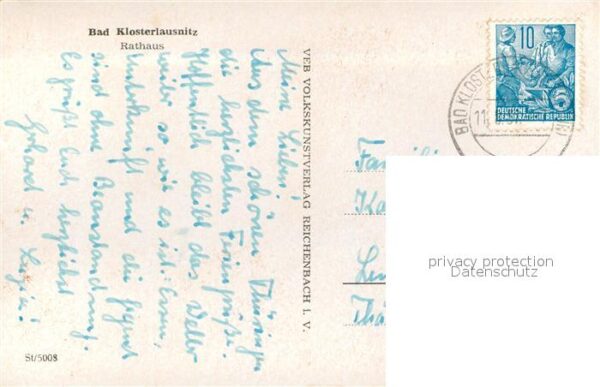 Bad Klosterlausnitz
Rathaus
Meine Lieben!
Aus dem schönen Thüringen
die herzlichsten Feriengrüße.
Hoffentlich bleibt das Wetter
weiter so wie es ist. Essen,
Unterkunft und die Gegend
sind ohne Beanstandung.
Es grüßt Euch herzlichst
Erhard u.
St/5008
VEB VOLKSKUNSTVERLAG REICHENBACH i. V.
10
DEUTSCHE
DEMOKRATISCHE REPUBLIK
5
BAD KLOST
11
Fa
Ka
Thü
privacy protection
Datenschutz